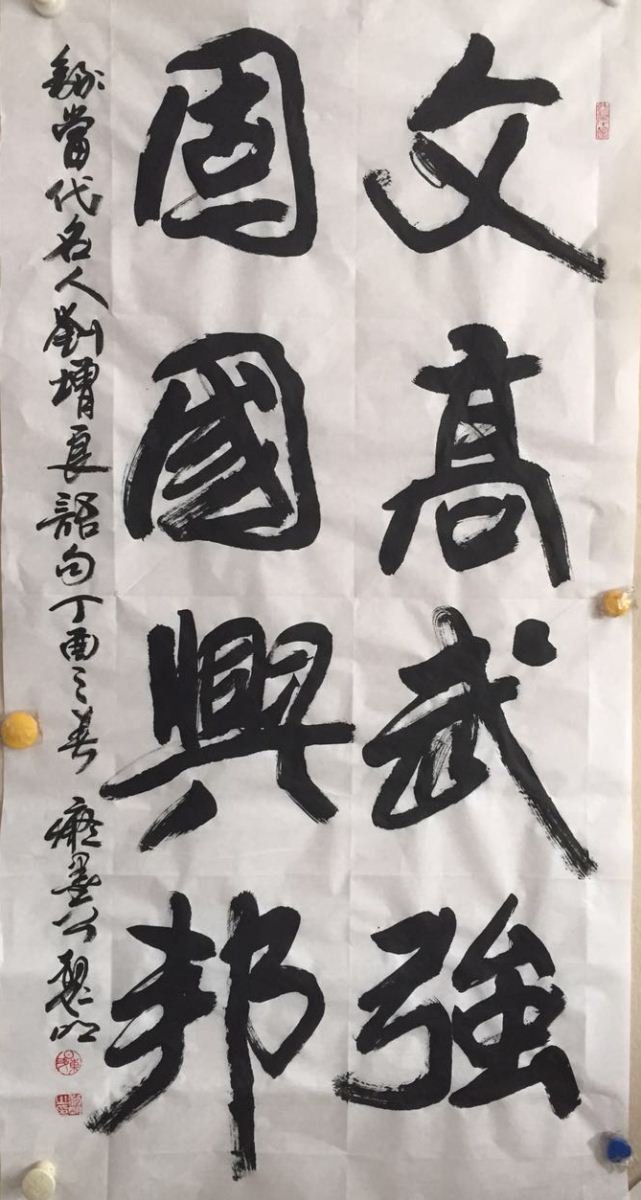 文高武強
固國興邦
錄當代名人劉增良語句丁酉之春 癡墨公